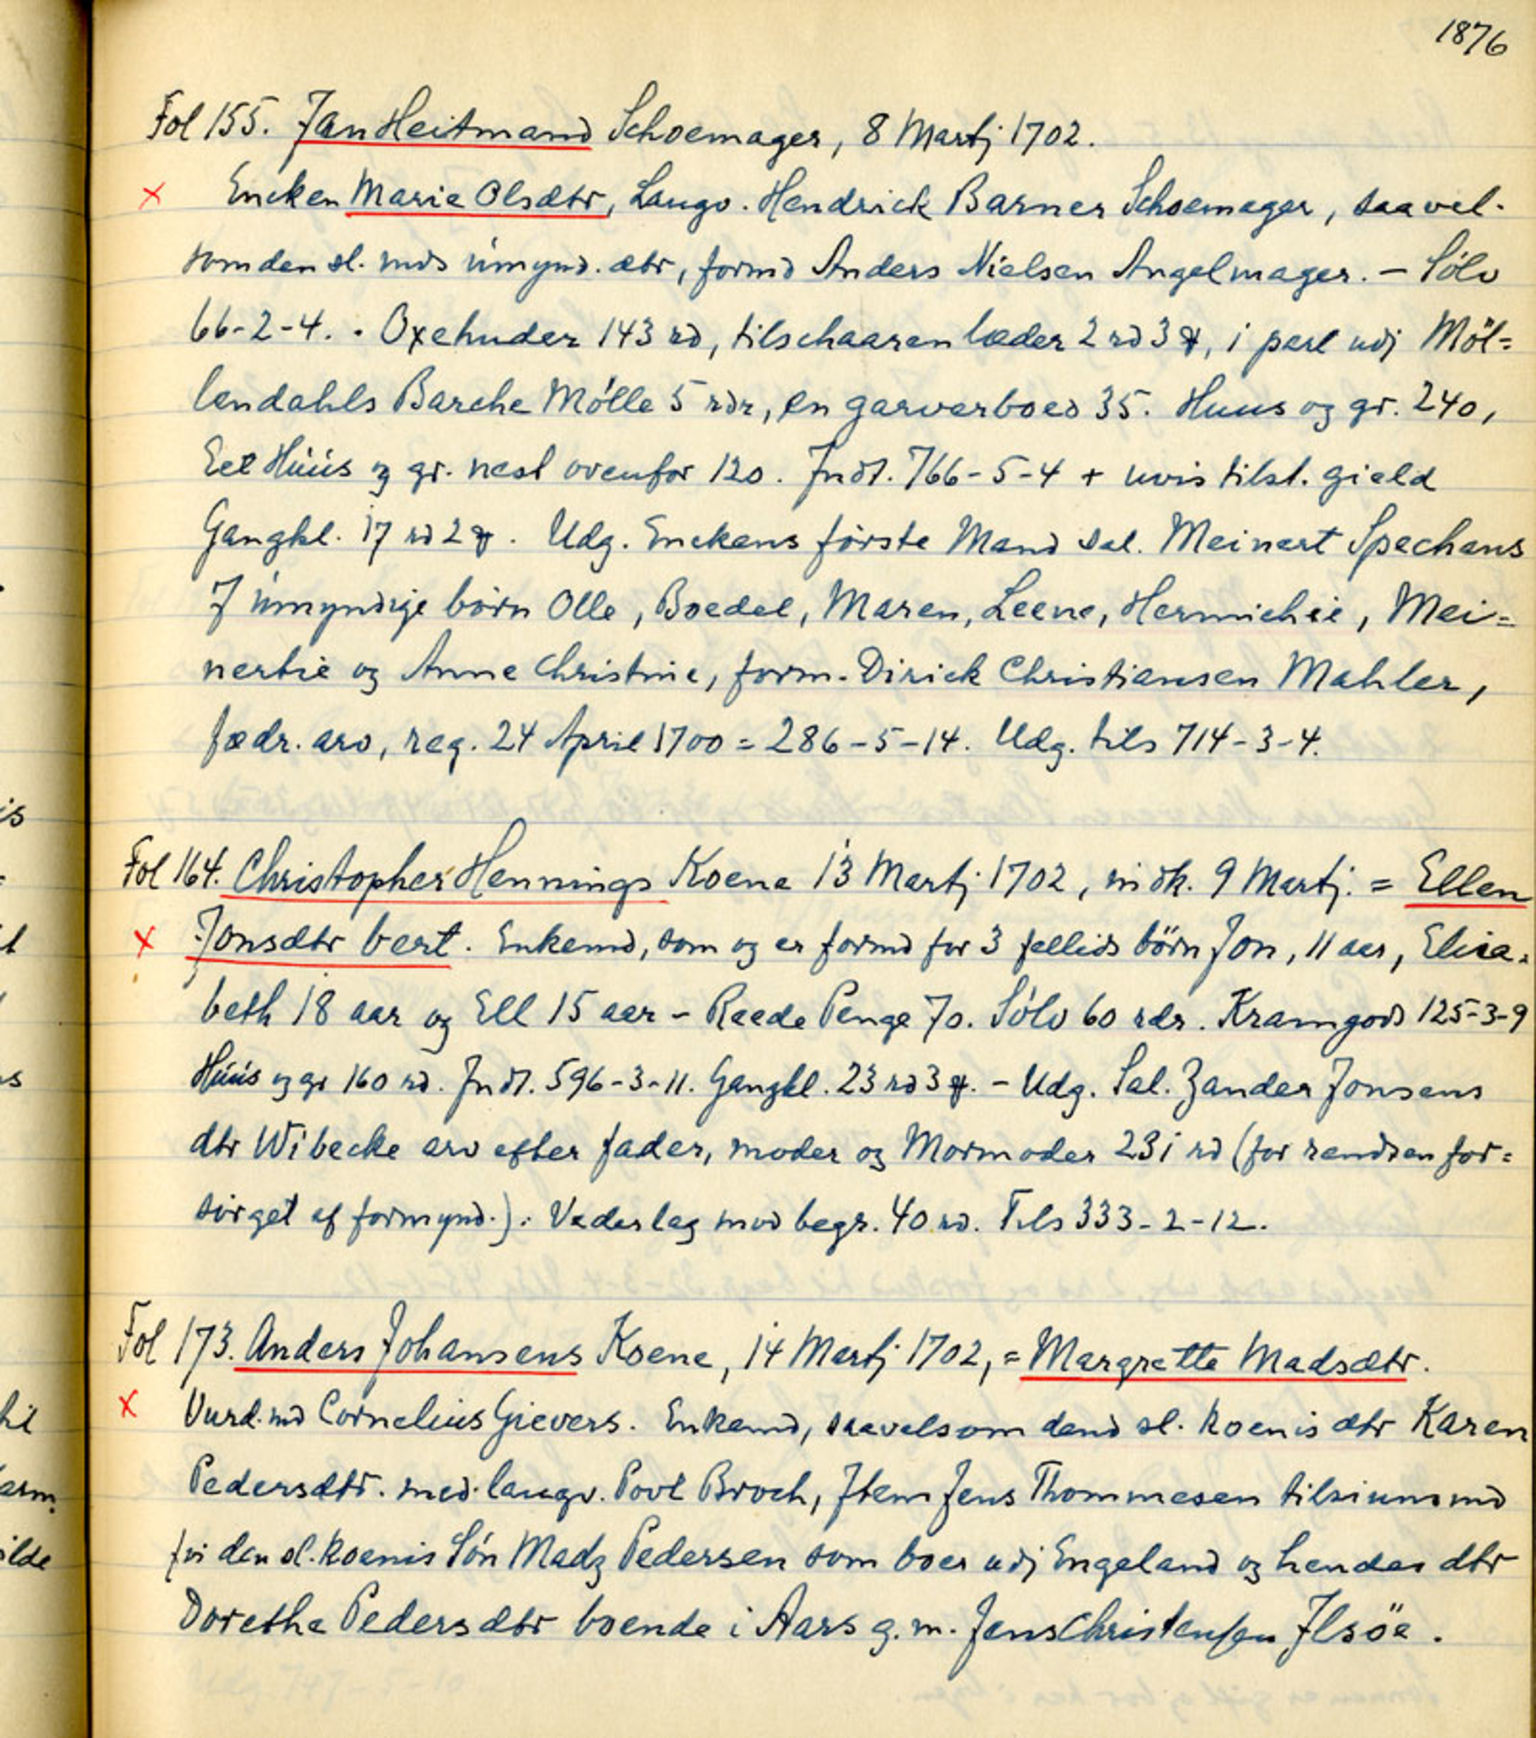 1876
Fol 155. Jan Heitmand Schoemager, 8 Martj 1702.
x Encken Marie Olsdtr, Laugv. Hendrick Barner Schoemager, saavel-
som den sl. mds úmynd. dtr, formd Anders Nielsen Angelmager. - Sölv
66-2-4. - Oxehuder 143 rd, tilschaaren læder 2 rd 3 , i part udj Möl=
lendahls Barche Mölle 5 rdr, en garverboed 35. Huus og gr. 240,
Eet Húús og gr. nest ovenfor 120. Indt. 766-5-4 + uvis tilst. gield
Gangkl. 17 rd 2 . Udg. Enckens förste Mand sal. Meinert Spechans
7 úmyndige börn Olle, Boedel, Maren, Leene, Hermichie, Mei=
nertie og Anne Christine, form. Dirick Christiansen Mahler,
fædr. arv, reg. 24 April 1700 = 286-5-14. Udg. tils 714-3-4.
Fol 164. Christopher Hennings Koene 13 Martj 1702, 9 Martj. = Ellen
x Jonsdtr bert. Enkemd, som og er formd for 3 fellids börn Jon, 11 aar, Elisa=
beth 18 aar og Ell 15 aar - Reede Penge 70. Sölv 60 rdr. Kramgods 125-3-9
Húús og gr 160 rd. Indt. 596-3-11. Gangkl. 23 rd 3 . - Udg. Sal. Zander Jonsens
dtr Wibecke arv efter fader, moder og Mormoder 231 rd (for rendsen for=
sörget af formynd.). Vederlag mod begr. 40 rd. Tils 333-2-12.
Fol 173. Anders Johansens Koene, 14 Martj 1702, = Margrette Madsdtr.
x Vurd. md Cornelius Gievers. Enkemd, saavelsom dend sl. koenis dtr Karen
Pedersdtr. med laugv. Povl Broch, Item Jens Thommesen tilsiunsmd
den sl. koenis Sön Madz Pedersen som boer udj Engeland og hendes dtr
Dorethe Pedersdtr boende i Aars g. m. Jens Christensen Ilsöe.